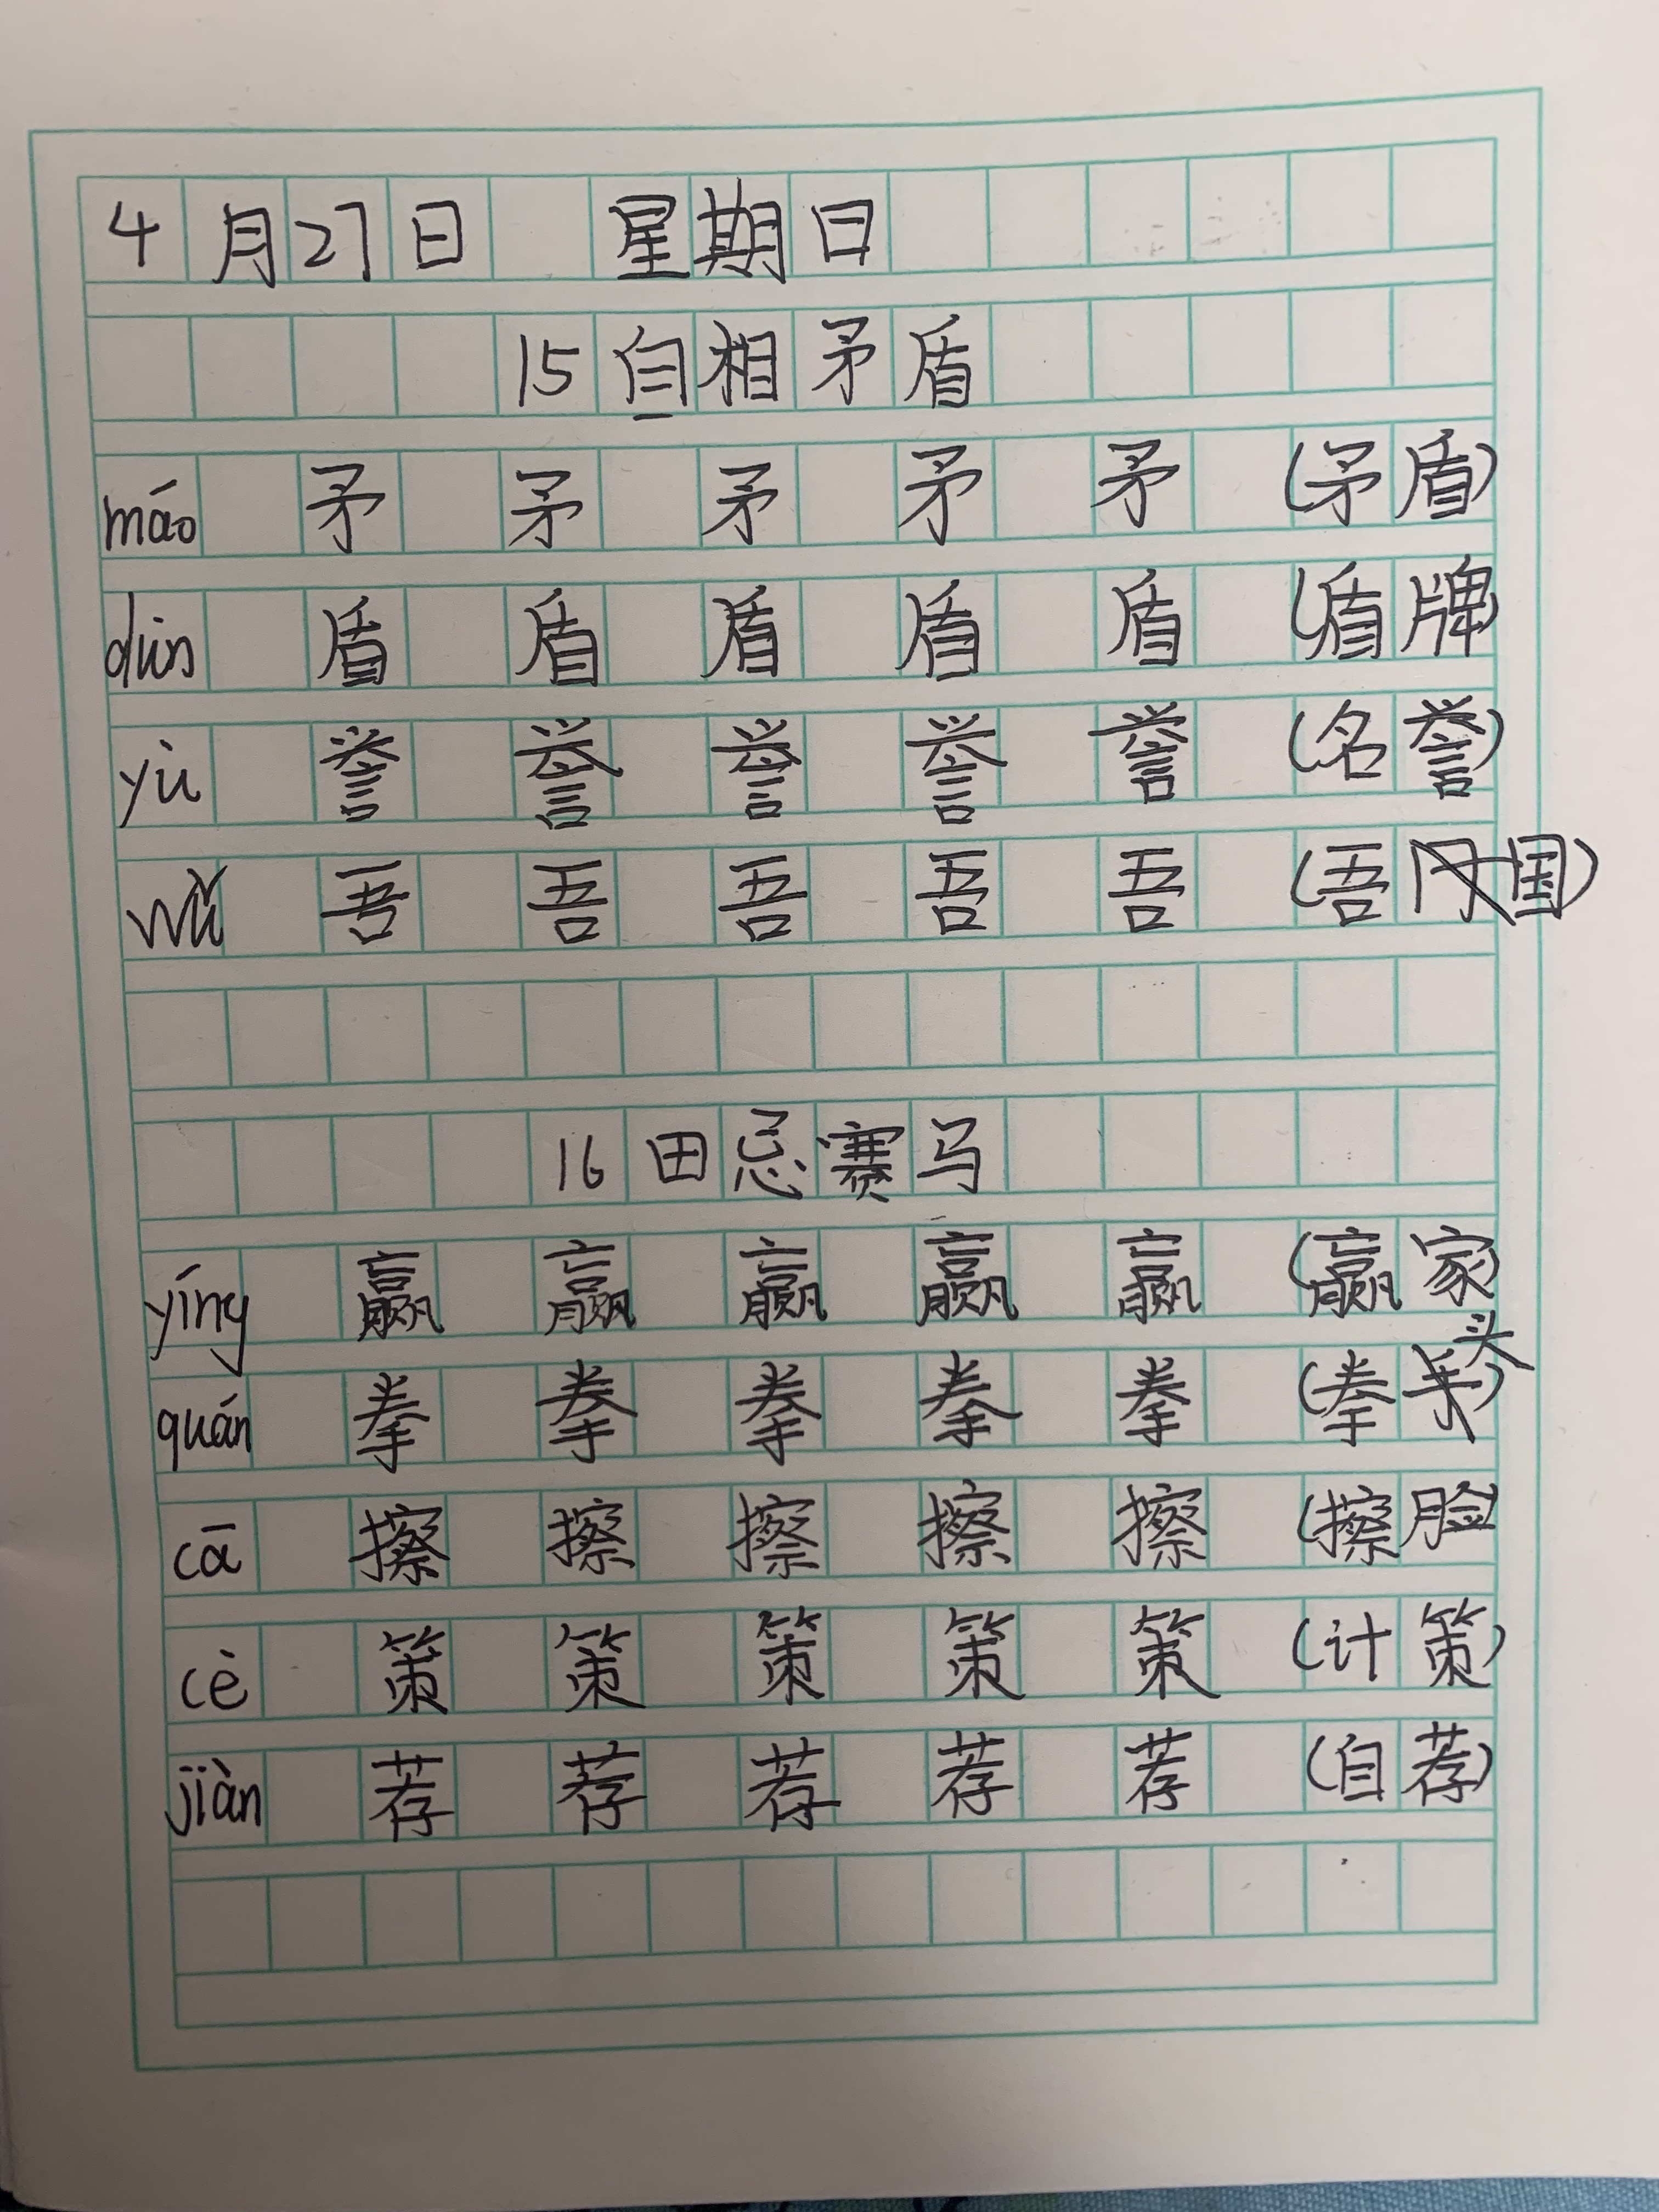 4月27日 星期日
15自相矛盾
máo 矛 矛 矛 矛 矛 (矛盾)
dùn 盾 盾 盾 盾 盾 (盾牌)
yù 誉 誉 誉 誉 誉 (名誉)
wú 吾 吾 吾 吾 吾 (吾国)
16田忌赛马
yíng 赢 赢 赢 赢 赢 (赢家)
quán 拳 拳 拳 拳 拳 (拳头)
cā 擦 擦 擦 擦 擦 (擦脸
cè 策 策 策 策 策 (计策)
jiàn 荐 荐 荐 荐 荐 (自荐)